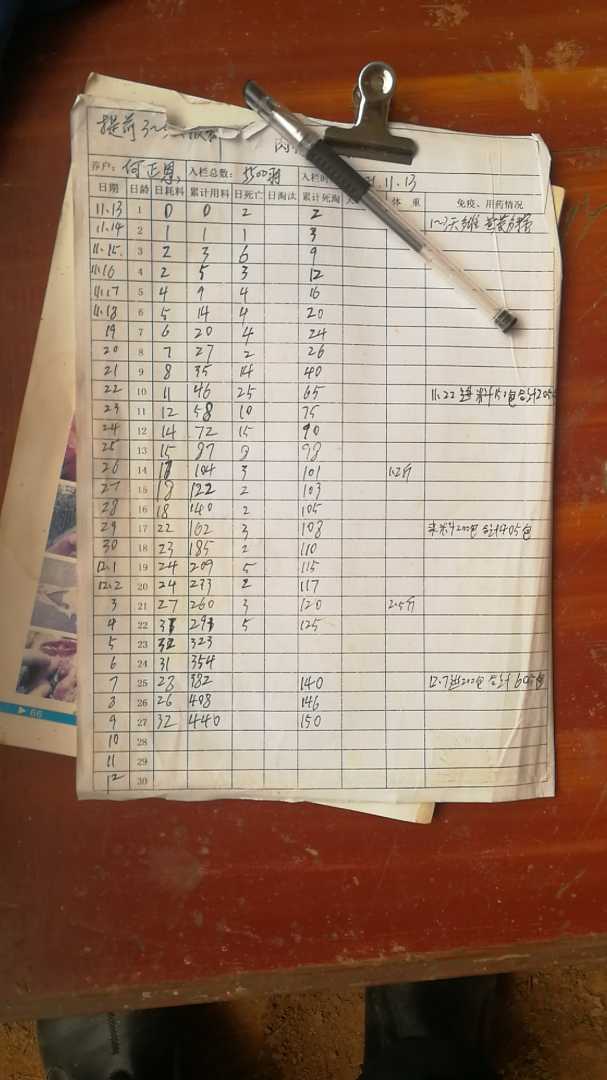 提前3~
养户: 何正 入栏总数: 5500羽 入栏时 11.13
日期 日龄 日耗料 累计用料 日死亡 日淘汰 累计死淘 体 重 免疫、用药情况
11.13 1 0 0 2 2 1~3天
11.14 2 1 1 1 3
11.15 3 2 3 6 9
11.16 4 2 5 3 12
11.17 5 4 9 4 16
11.18 6 5 14 4 20
19 7 6 20 4 24
20 8 7 27 2 26
21 9 8 35 14 40
22 10 11 46 25 65 11.22 料151包合计205
23 11 12 58 10 75
24 12 14 72 15 90
25 13 15 87 98
26 14 104 3 101 1.2斤
27 15 18 122 2 103
28 16 18 140 2 105
29 17 22 162 3 108 来料200包合计405包
30 18 23 185 2 110
12.1 19 24 209 5 115
12.2 20 24 233 2 117
3 21 27 260 3 120 2.5斤
4 22 293 5 125
5 23 323
6 24 31 354
7 25 28 382 140 12.7进200包合计605包
8 26 26 408 146
9 27 32 440 150
10 28
11 29
12 30
▶ 66